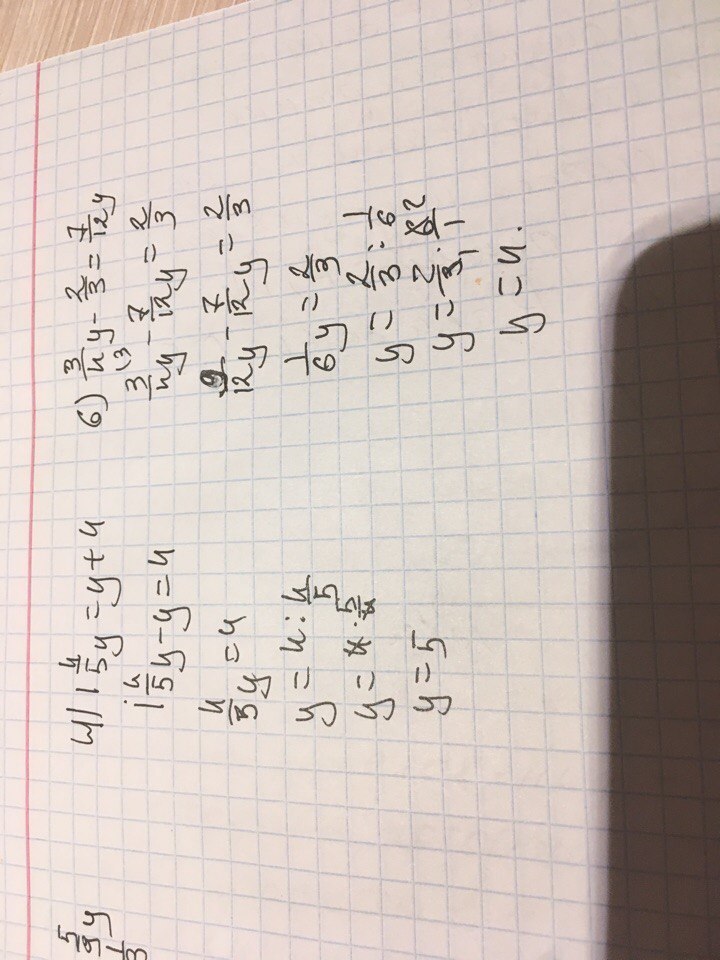 4) 1 4/5 y = y + 4
1 4/5 y - y = 4
4/5 y = 4
y = 4 : 4/5
y = 4 · 5/4
y = 5
6) 3/4 y - 2/3 = 7/12 y
3/4 y - 7/12 y = 2/3
9/12 y - 7/12 y = 2/3
1/6 y = 2/3
y = 2/3 : 1/6
y = 2/3 · 6/1
y = 4.
5/9 y
1/3